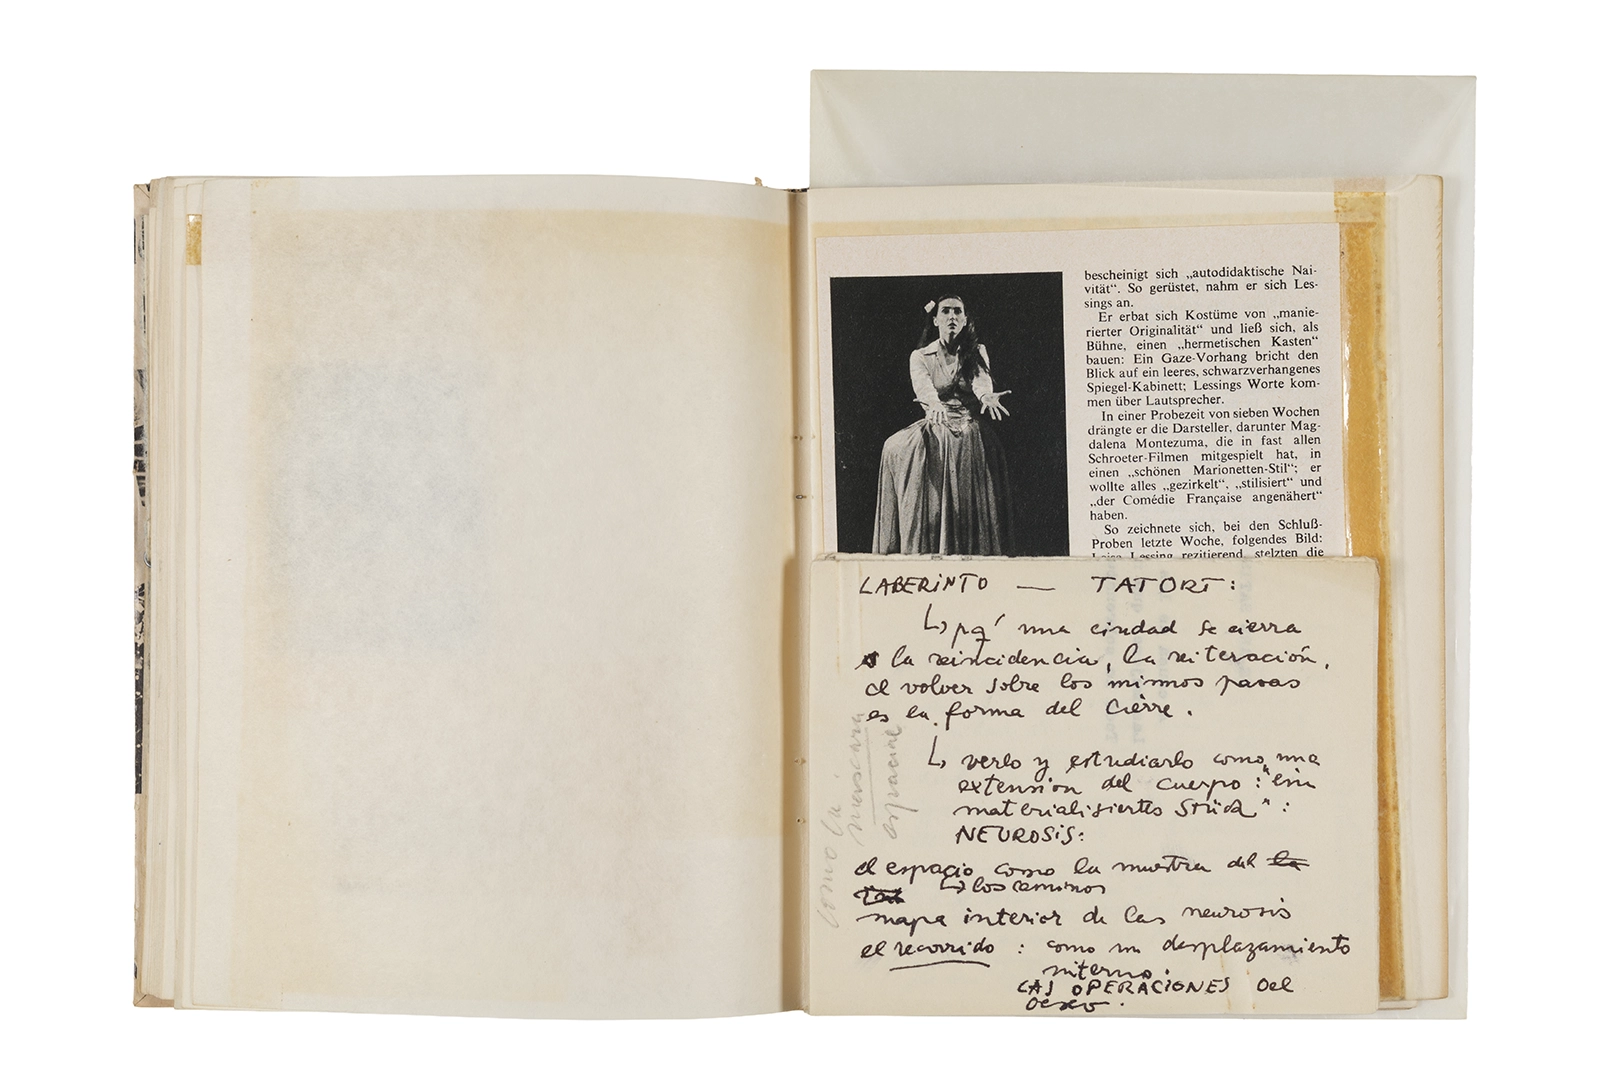 bescheinigt sich „autodidaktische Nai-
vität“. So gerüstet, nahm er sich Les-
sings an.
Er erbat sich Kostüme von „manie-
rierter Originalität“ und ließ sich, als
Bühne, einen „hermetischen Kasten“
bauen: Ein Gaze-Vorhang bricht den
Blick auf ein leeres, schwarzverhangenes
Spiegel-Kabinett; Lessings Worte kom-
men über Lautsprecher.
In einer Probezeit von sieben Wochen
drängte er die Darsteller, darunter Mag-
dalena Montezuma, die in fast allen
Schroeter-Filmen mitgespielt hat, in
einen „schönen Marionetten-Stil“; er
wollte alles „gezirkelt“, „stilisiert“ und
„der Comédie Française angenähert“
haben.
So zeichnete sich, bei den Schluß-
Proben letzte Woche, folgendes Bild:
Lessing rezitierend, stelzten die
LABERINTO — TATORT:
↳ pq' una ciudad se cierra
la reincidencia, la reiteración,
el volver sobre los mismos pasos
es la forma del cierre.
↳ verlo y estudiarlo como una
extension del cuerpo: "ein
materialisiertes Stück":
NEUROSIS:
el espacio como la muestra del la
↳ los caminos
mapa interior de las neurosis
el recorrido: como un desplazamiento
interno.
LAS OPERACIONES DEL
DESEO.
como la
mascara
espacial